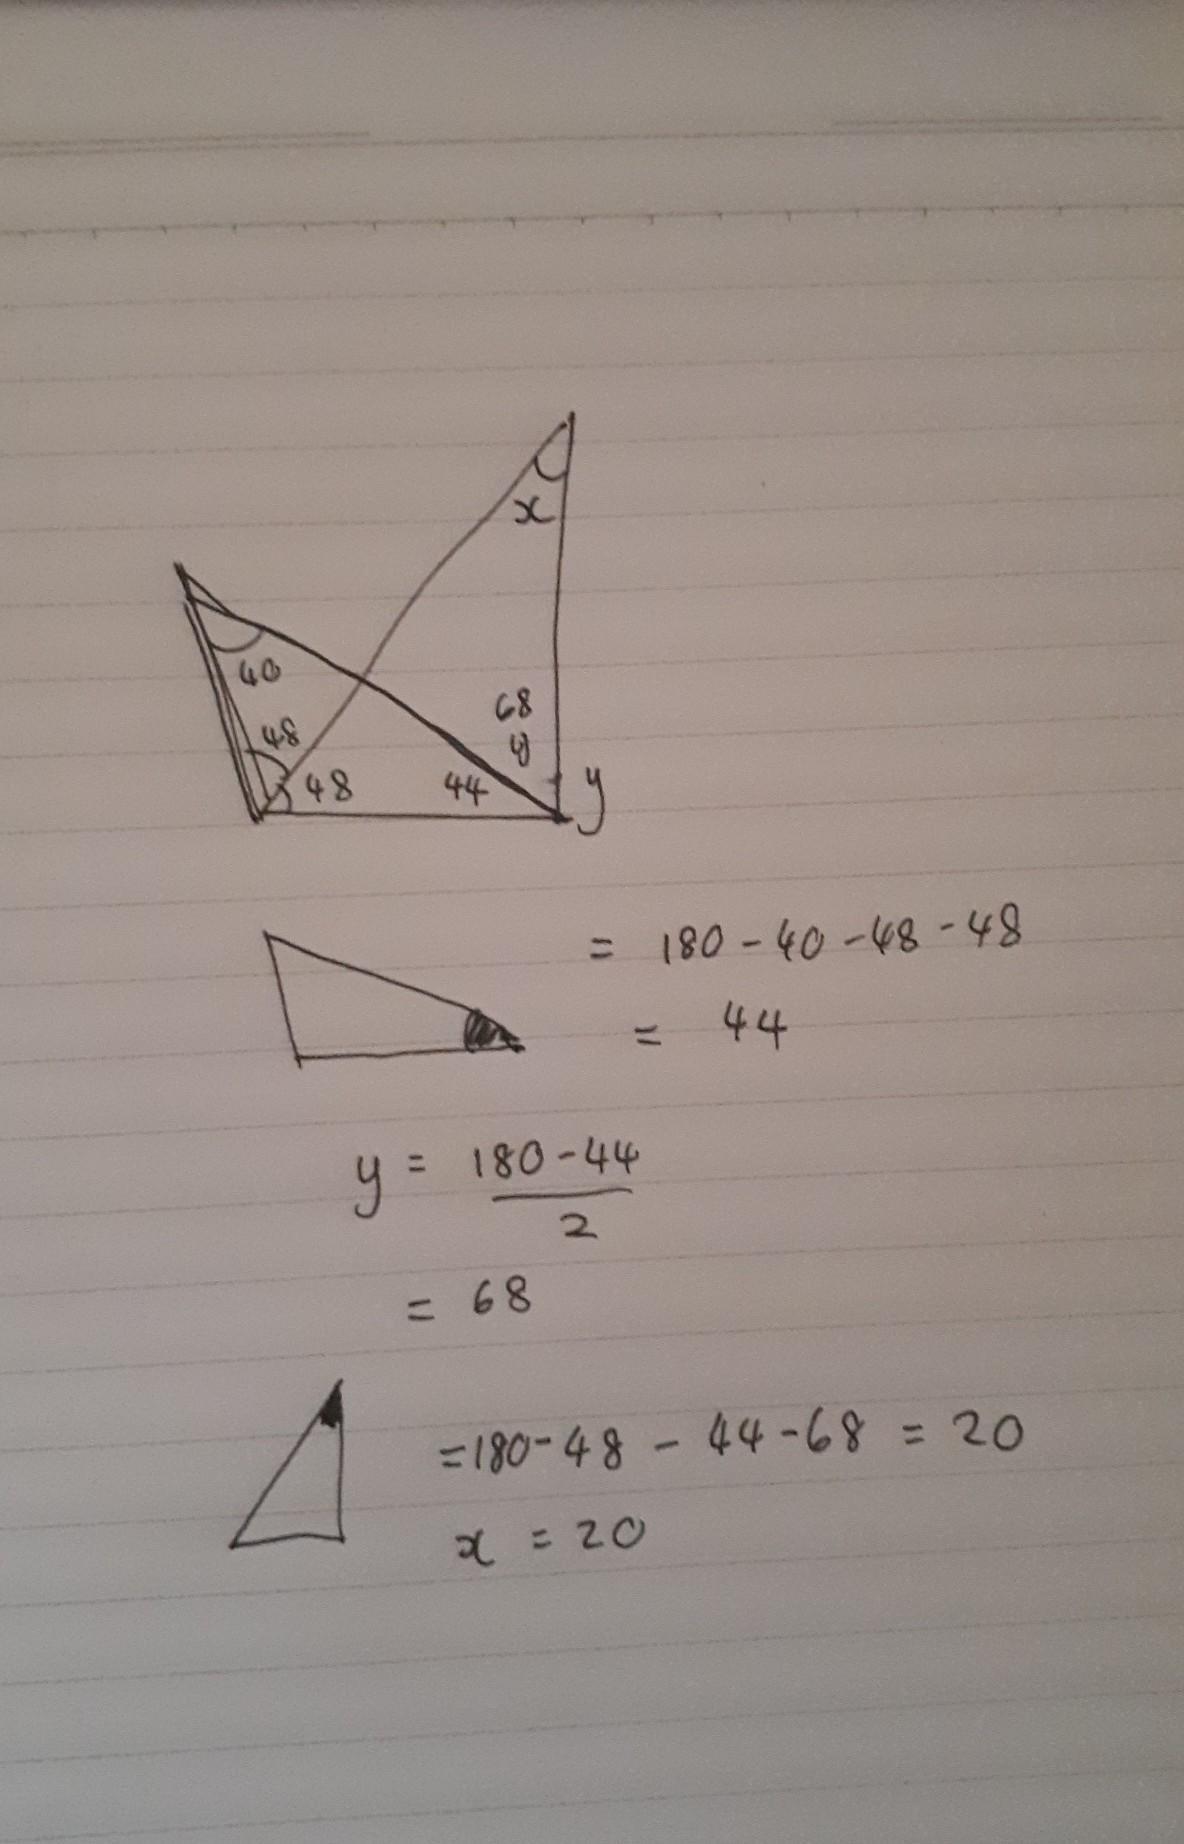 x
40
68
48
y
48
44
y
= 180 - 40 - 48 - 48
= 44
y = 180 - 44
2
= 68
= 180 - 48 - 44 - 68 = 20
x = 20